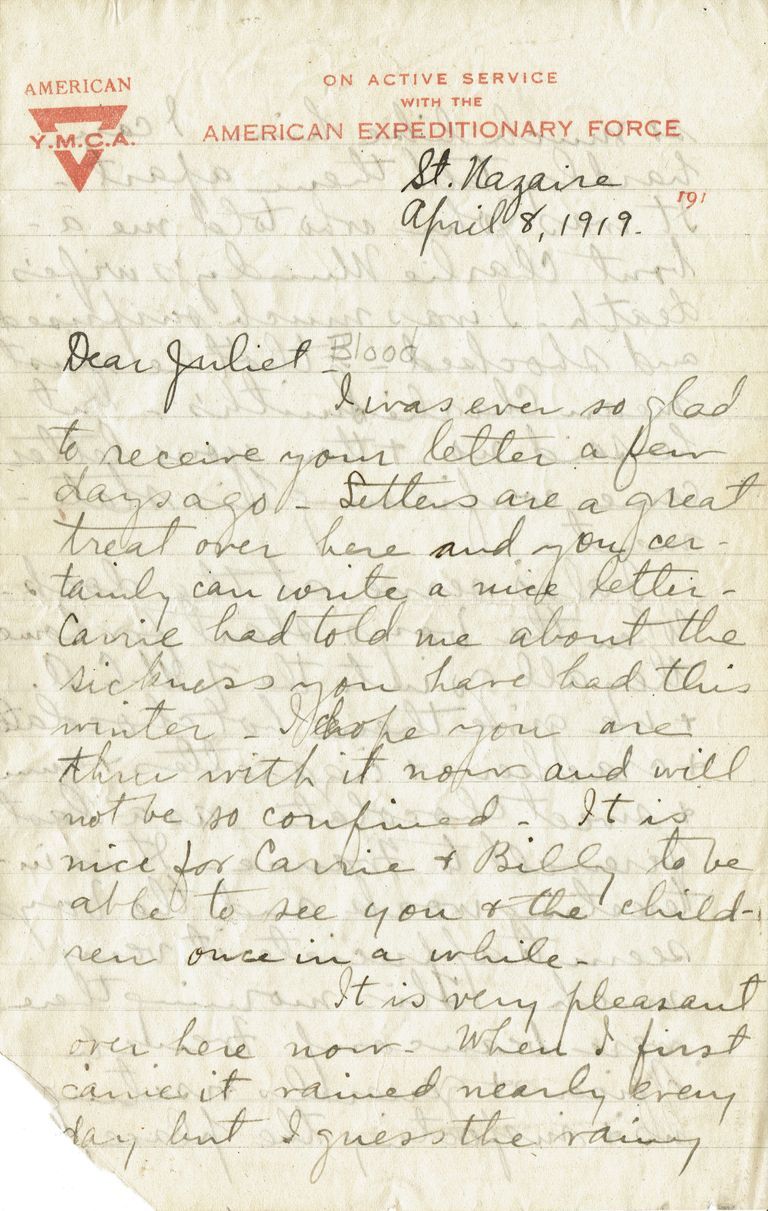 AMERICAN
Y.M.C.A.
ON ACTIVE SERVICE
WITH THE
AMERICAN EXPEDITIONARY FORCE
191
St. Nazaire
April 8, 1919.
Dear Juliet - Blood
I was ever so glad
to receive your letter a few
days ago - Letters are a great
treat over here and you cer-
tainly can write a nice letter -
Carrie had told me about the
sickness you have had this
winter - I hope you are
thru with it now and will
not be so confined - It is
nice for Carrie & Billy to be
able to see you & the child-
ren once in a while -
It is very pleasant
over here now - When I first
came it rained nearly every
day but I guess the rainy